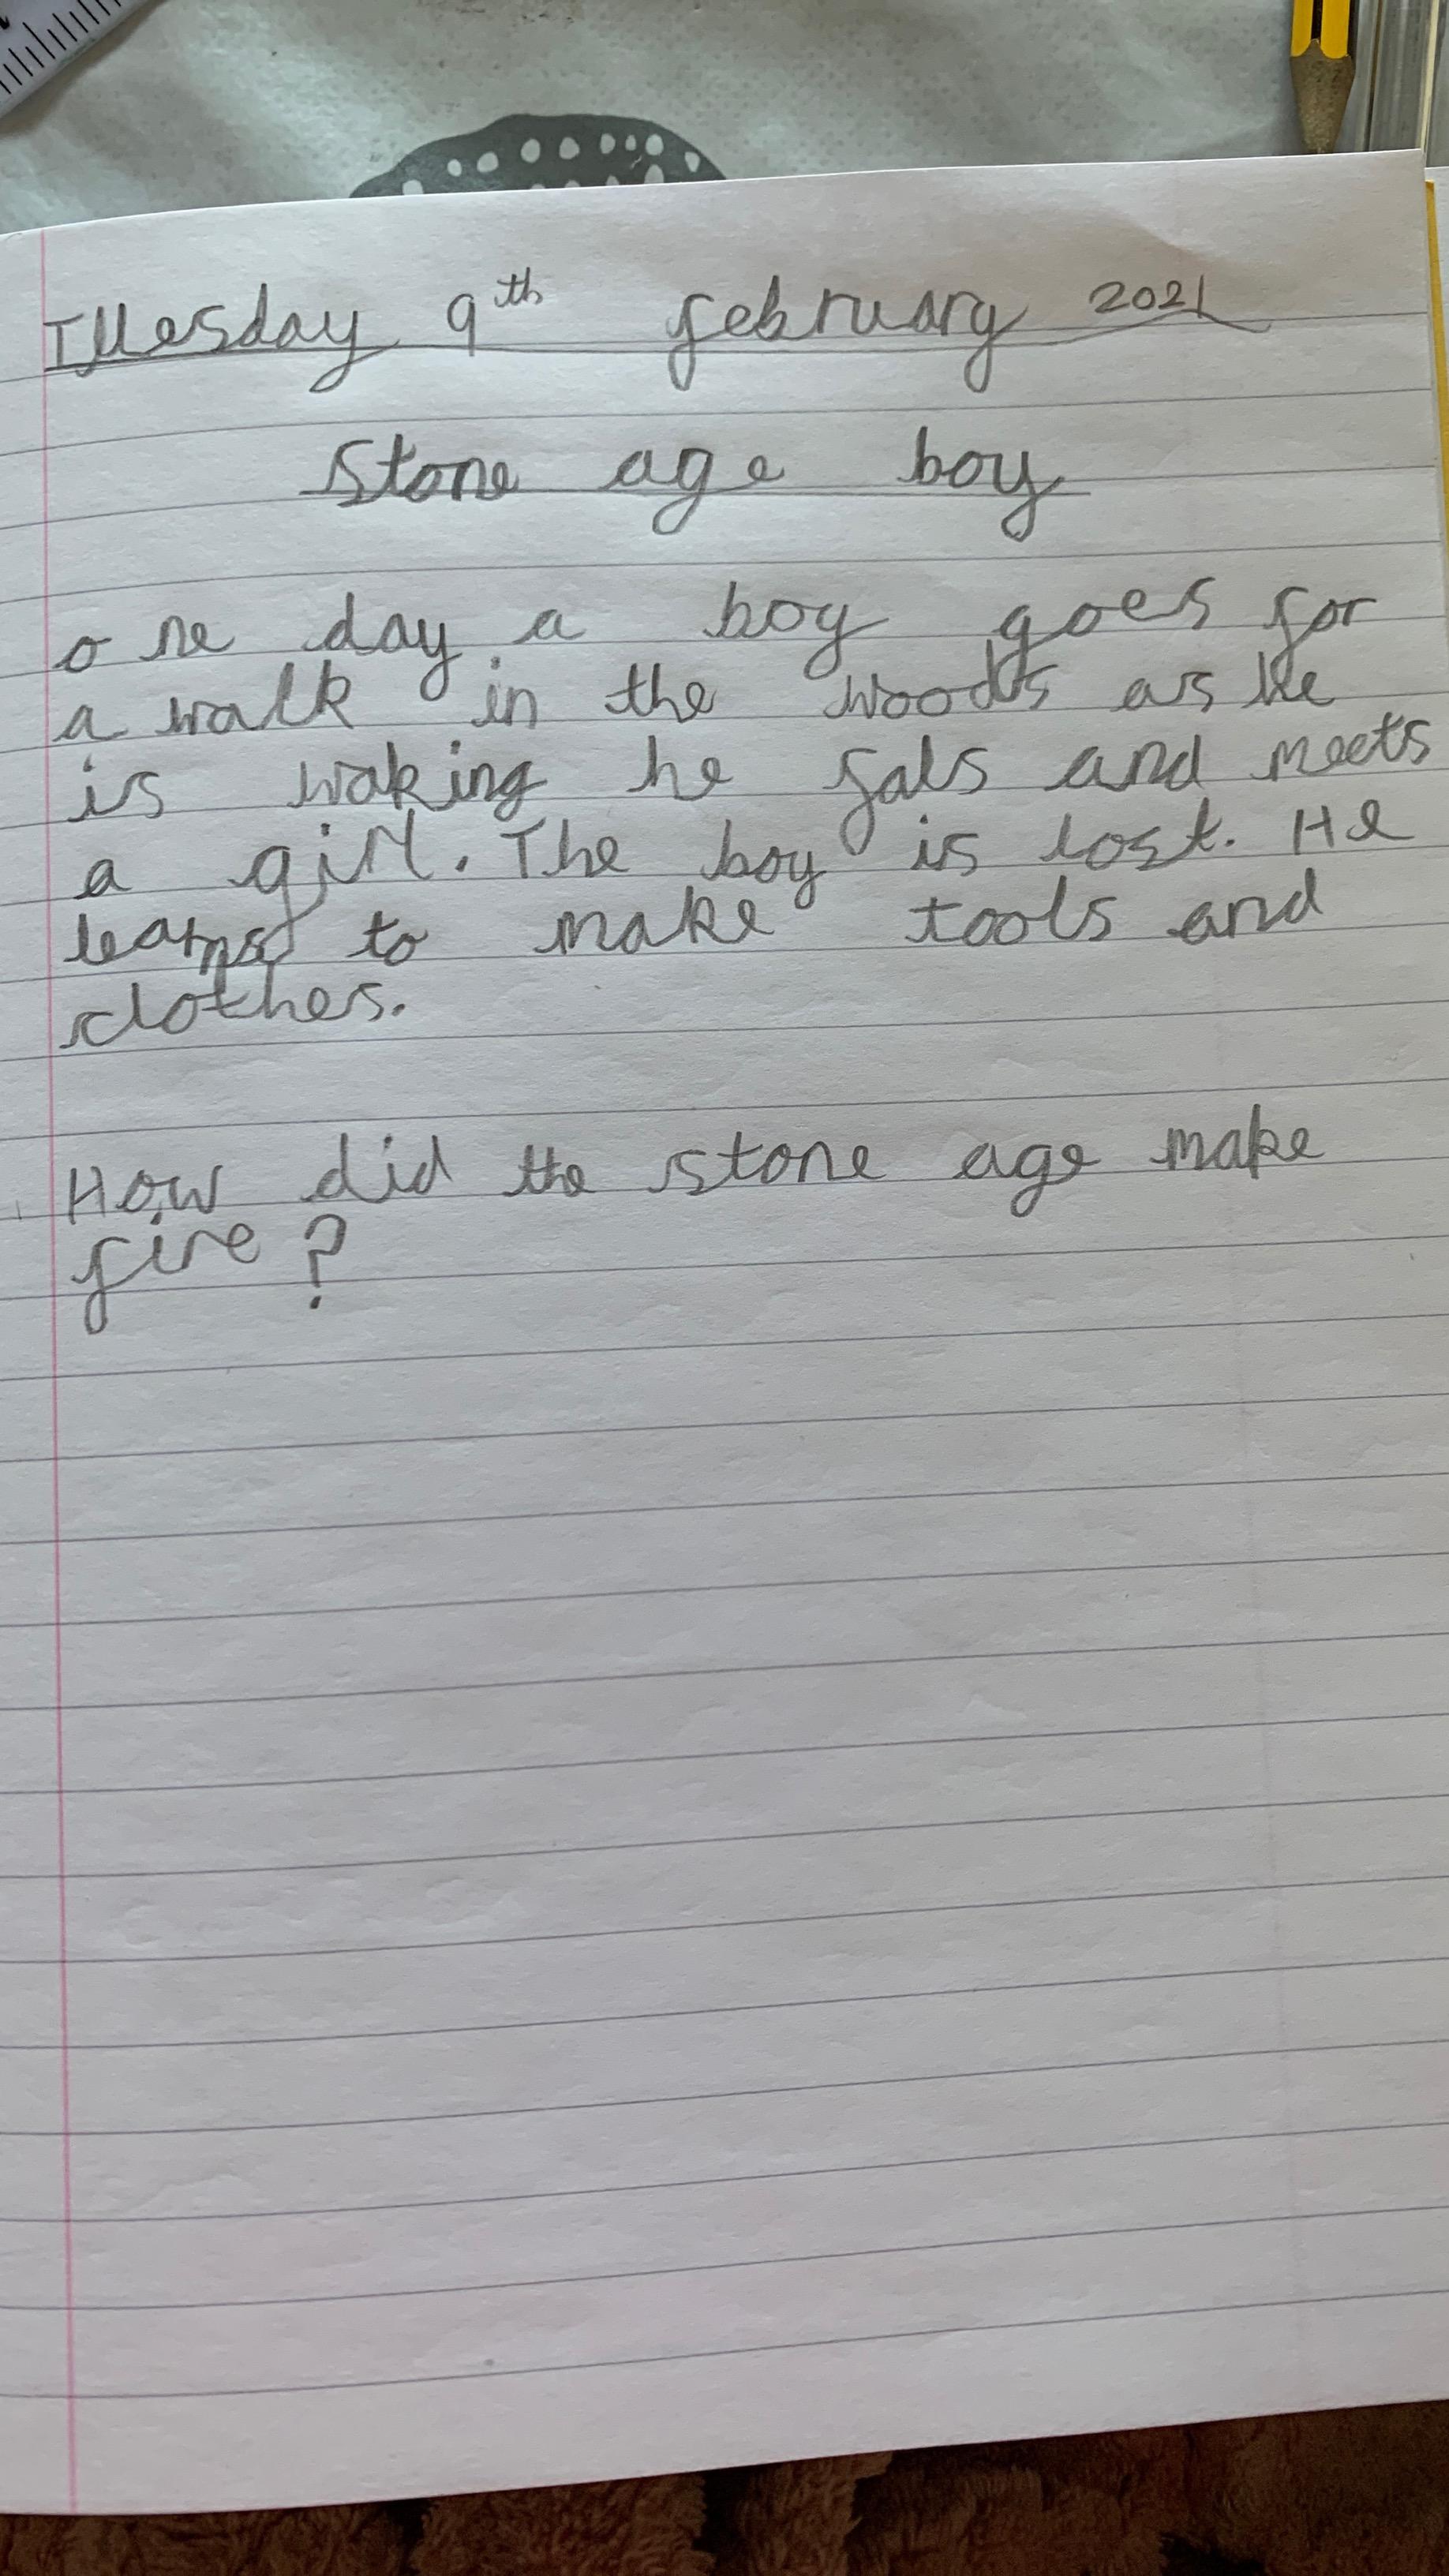 Tuesday 9th february 2021
Stone age boy
one day a boy goes for
a walk in the woods as he
is waking he fals and meets
a girl. The boy is lost. He
learns to make tools and
clothes.
How did the stone age make
fire?